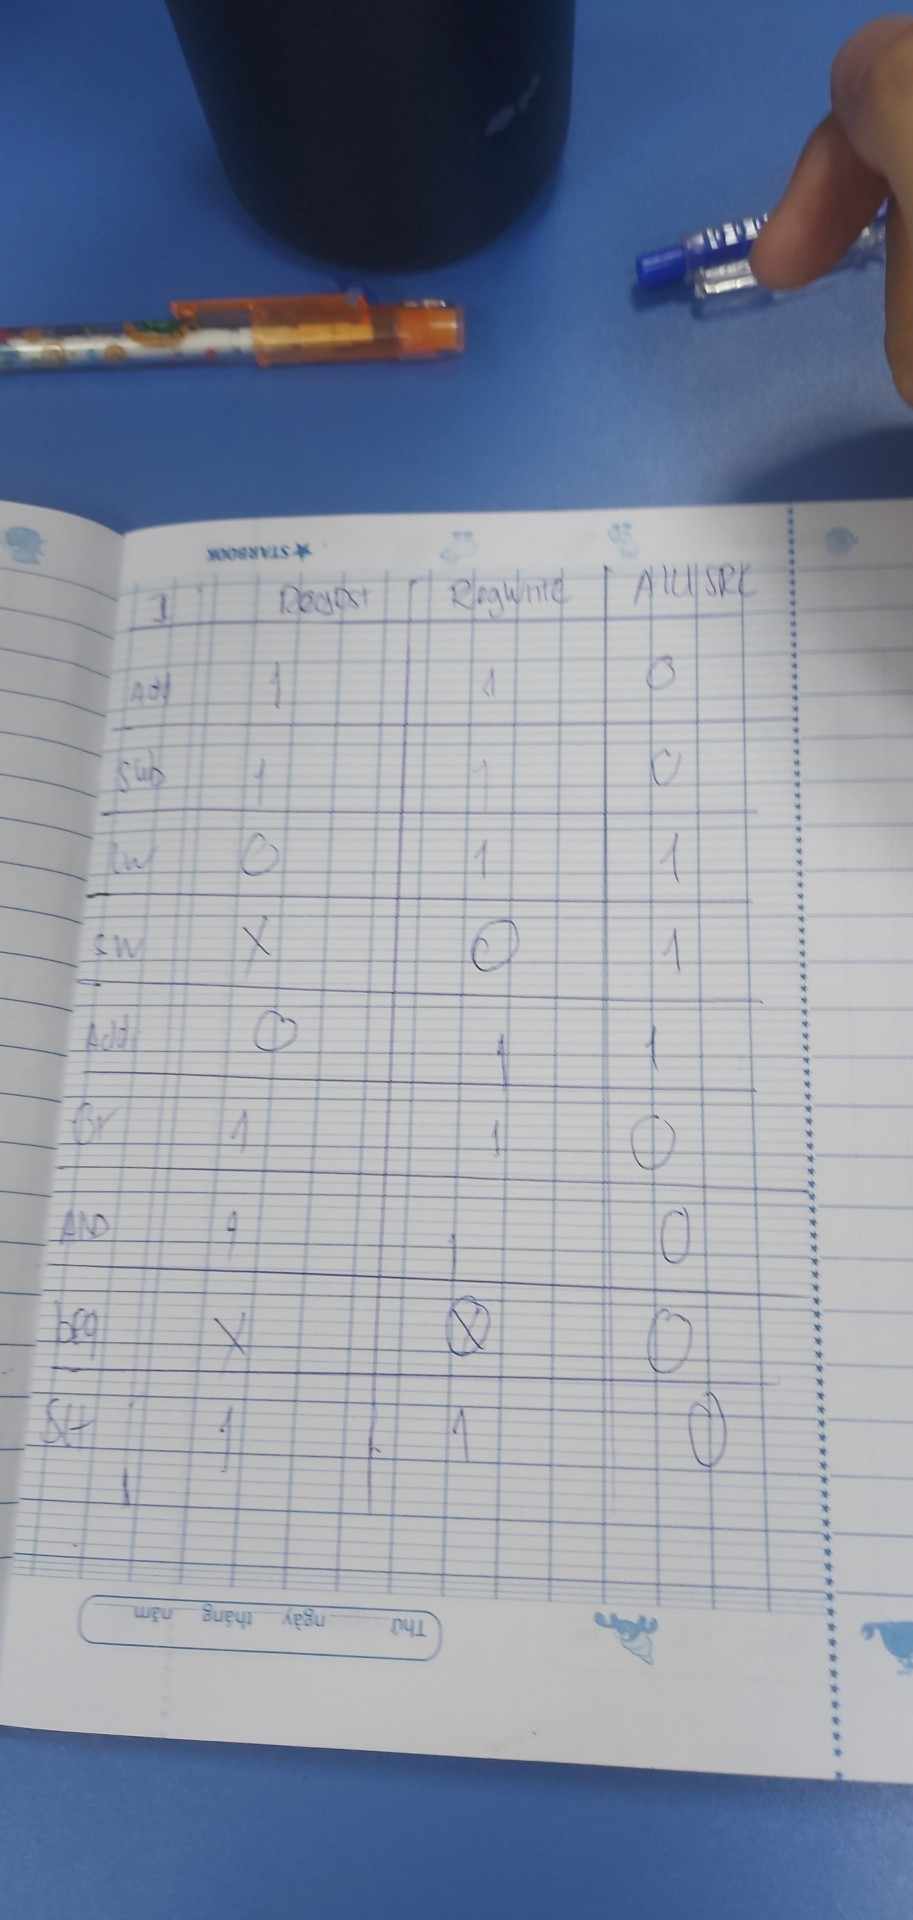 ★ STARBOOK
1 RegDst RegWrite ALUSRC
Add 1 1 0
Sub 1 1 0
lw 0 1 1
sw X 0 1
Addi 0 1 1
Or 1 1 0
AND 1 1 0
beq X 0
Slt 1 1 0
Thứ ngày tháng năm